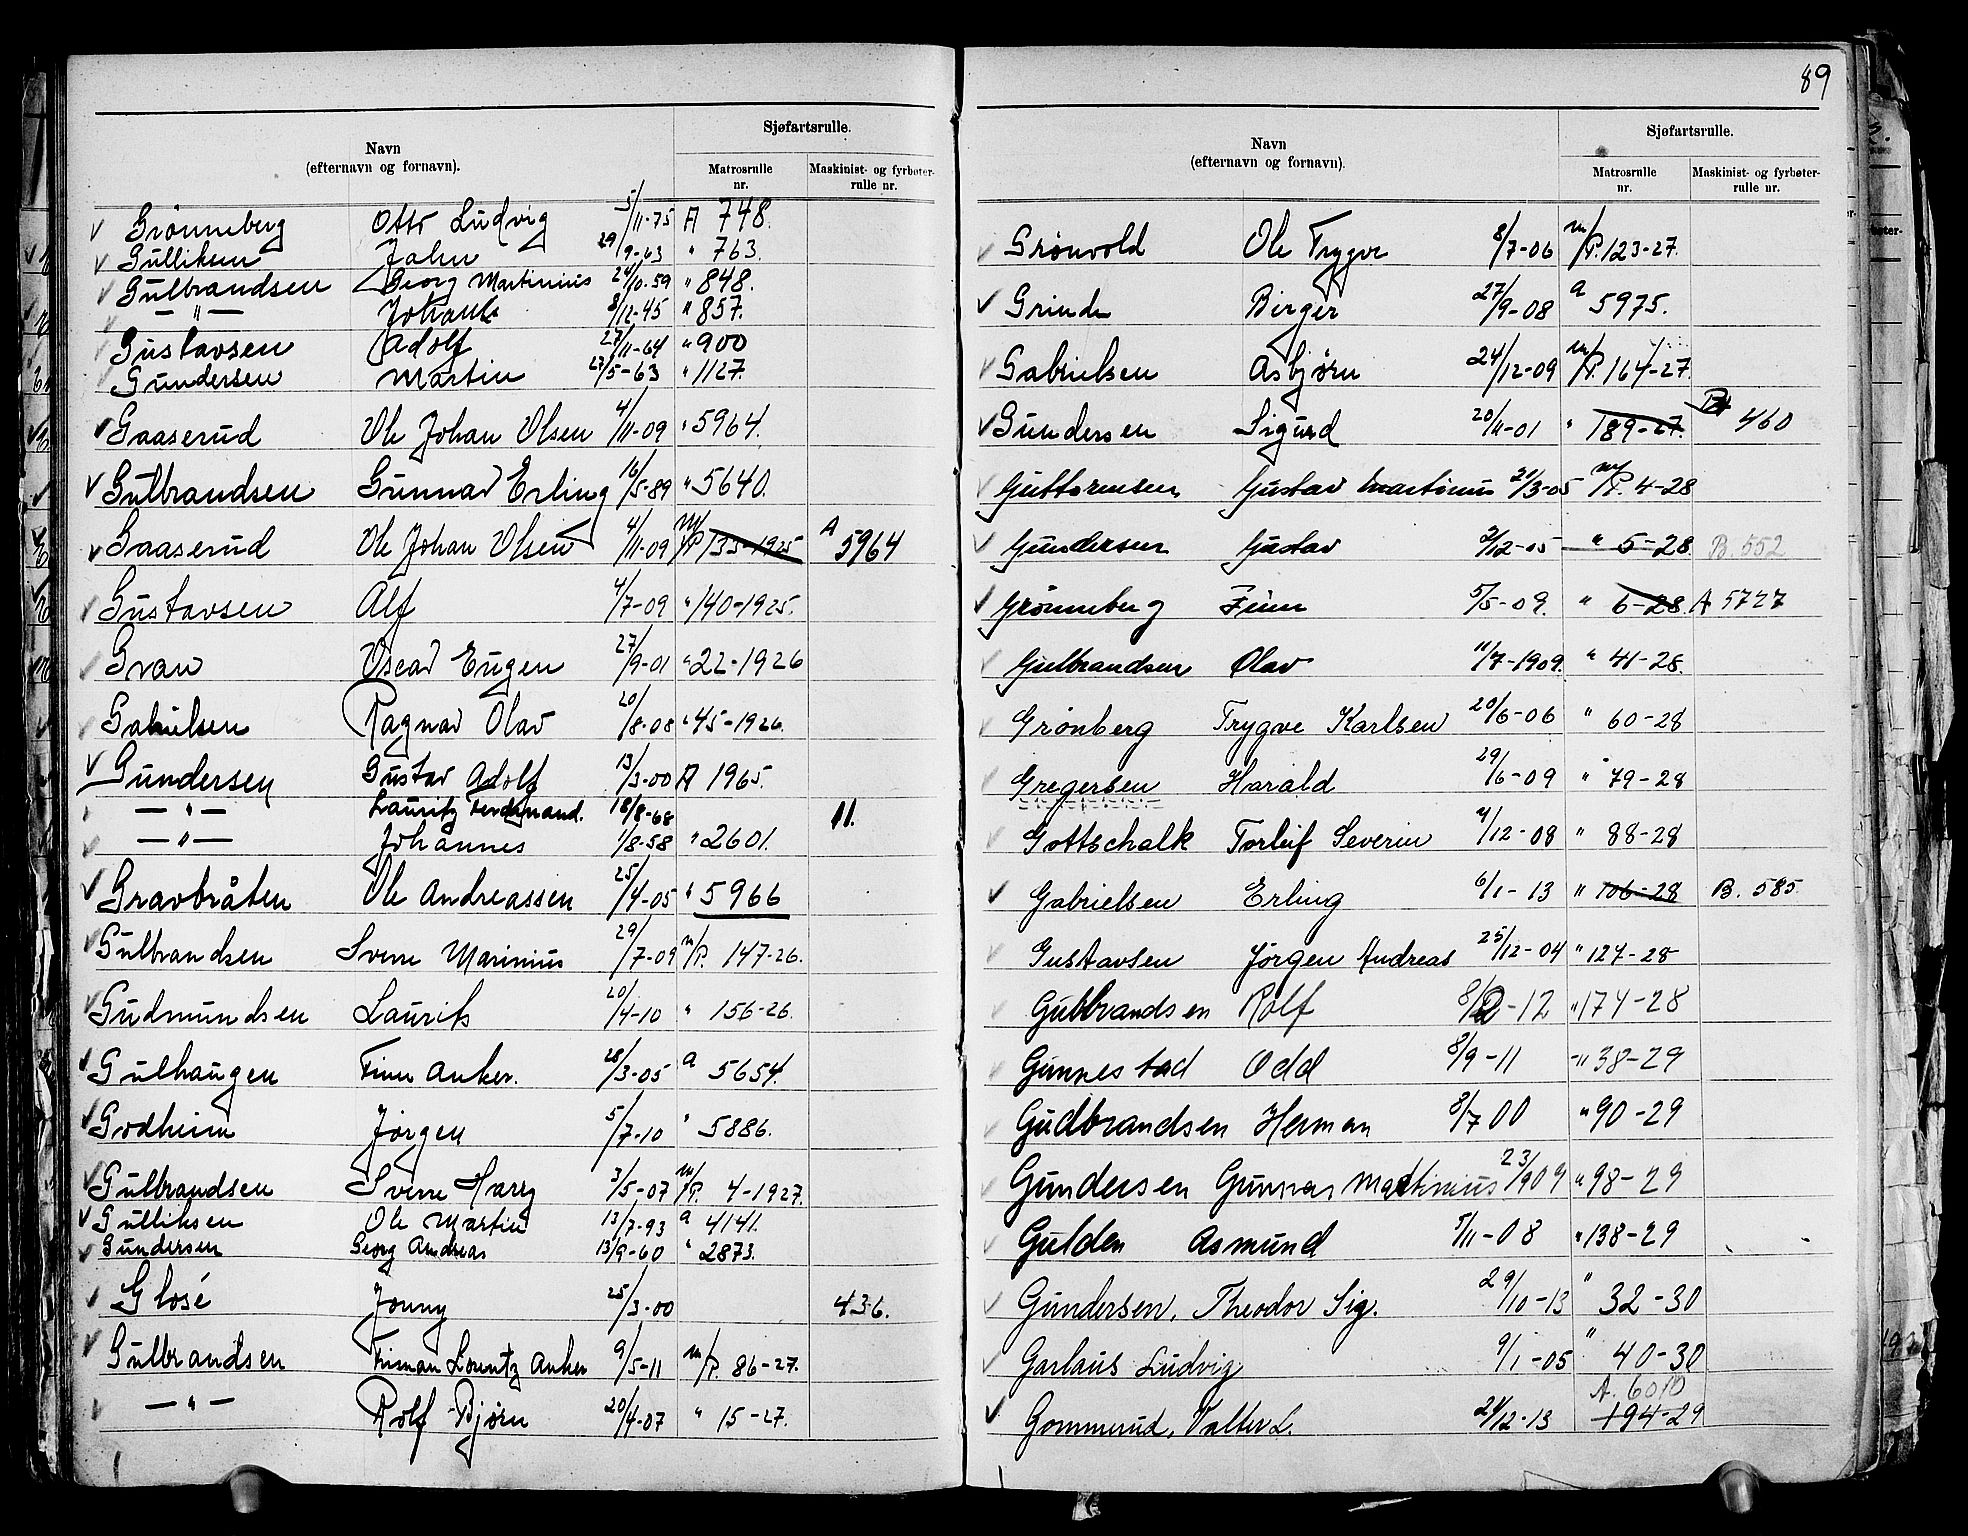 89
Navn
(efternavn og fornavn).
Sjøfartsrulle.
Matrosrulle nr.
Maskinist- og fyrbøter-rulle nr.
Grönneberg Otto Ludvig 5/11-75 A 748.
Gulliksen Johan 29/9-63 " 763.
Gulbrandsen Georg Martinius 24/10-59 " 848.
— " — Johan 8/12-45 " 857.
Gustavsen Adolf 27/11-64 " 900
Gundersen Martin 27/5-63 " 1127.
Gaaserud Ole Johan Olsen 4/11-09 " 5964.
Gulbrandsen Gunnar Erling 16/5-89 " 5640.
Gaaserud Ole Johan Olsen 4/11-09 m/P 135-1925 A 5964
Gustavsen Alf 4/7-09 " 140-1925.
Gran Oscar Eugen 27/9-01 " 22-1926
Gabrielsen Ragnar Olav 20/8-08 " 45-1926.
Gundersen Gustav Adolf 13/3-00 A 1965.
— " — Lauritz Ferdinand. 18/8-68 11.
— " — Johannes 1/8-58 " 2601.
Gravbråten Ole Andreassen 25/4-05 " 5966
Gulbrandsen Sverre Marinius 29/7-09 m/P. 147-26.
Gudmundsen Laurits 20/4-10 " 156-26.
Gulhaugen Finn Anker. 28/3-05 a 5654.
Godheim Jörgen 5/7-10 " 5886.
Gulbrandsen Sverre Harry 3/5-07 m/P. 4-1927.
Gulliksen Ole Martin 13/7-93 a 4141.
Gundersen Georg Andreas 13/9-60 " 2873.
Glosé Jonny 25/3-00 436.
Gulbrandsen Lorentz Anker 9/5-11 m/P. 86-27.
— " — Rolf Bjørn 20/4-07 " 15-27.
Navn
(efternavn og fornavn).
Sjøfartsrulle.
Matrosrulle nr.
Maskinist- og fyrbøter-rulle nr.
Grönvold Ole Trygve 8/7-06 m/P. 123-27.
Grinde Birger 27/9-08 a 5975.
Gabrielsen Asbjørn 24/12-09 m/P. 164-27.
Gundersen Sigurd 20/11-01 " 189-27. 460
Guttormsen Gustav Martinius 21/3-05 m/P. 4-28
Gundersen Gustav 2/12-05 " 5-28. B. 552
Grönneberg Finn 5/5-09. " 6-28. A 5727
Gulbrandsen Olav 11/7-1909. " 41-28.
Grönberg Trygve Karlsen 20/6-06 " 60-28
Gregersen Harald 29/6-09 " 79-28
Gottschalk Torleif Severin 4/12-08 " 88-28
Gabrielsen Erling 6/1-13 " 106-28 B. 585.
Gustavsen Jörgen Andreas 25/12-04 " 127-28
Gulbrandsen Rolf 8/2-12 " 174-28
Gunnestad Odd 8/9-11 " 38-29
Gudbrandsen Herman 8/7 00 " 90-29
Gundersen Gunnar Martinius 23/909 " 98-29
Gulden Asmund 5/11-08 " 138-29
Gundersen, Theodor Sig. 29/10-13 " 32-30
Garlaus Ludvig 9/1-05 " 40-30
A. 6010
Gommerud, Valter L. 24/12-13 194-29